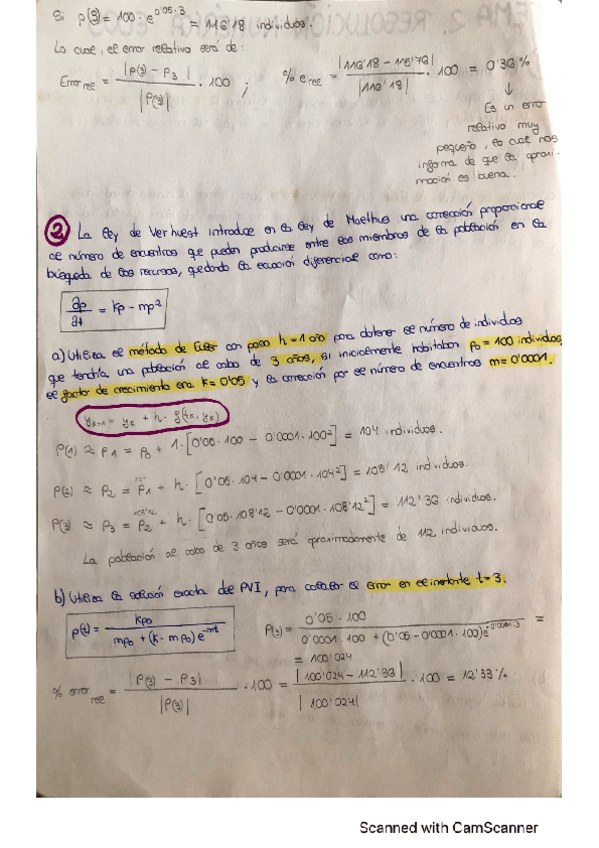 Si p(3) = 100 · e^0'05·3 = 116'18 individuos.
Lo cual, el error relativo será de:
Error rel = |p(3) - P3| / |P(3)| · 100 ; % e rel = |116'18 - 115'76| / |116'18| · 100 = 0'36 %
↓
Es un error
relativo muy
pequeño, lo cual nos
informa de que la aproxi-
mación es buena.
② La ley de Verhulst introduce en la ley de Malthus una corrección proporcional
al número de encuentros que pueden producirse entre los miembros de la población en la
búsqueda de los recursos, quedando la ecuación diferencial como:
∂p/∂t = kp - mp²
a) Utiliza el método de Euler con paso h = 1 año para obtener el número de individuos
que tendría una población al cabo de 3 años, si inicialmente habitaban p0 = 100 individuos,
el factor de crecimiento era k = 0'05 y la corrección por el número de encuentros m = 0'0001.
yk+1 = yk + h · f(tk, yk)
P(1) ≈ P1 = P0 + 1 · [0'05 · 100 - 0'0001 · 100²] = 104 individuos.
P(2) ≈ P2 = P1 + h · [0'05 · 104 - 0'0001 · 104²] = 108'12 individuos.
108'12
P(3) ≈ P3 = P2 + h · [0'05 · 108'12 - 0'0001 · 108'12²] = 112'36 individuos.
La población al cabo de 3 años será aproximadamente de 112 individuos.
b) Utiliza la solución exacta del PVI, para calcular el error en el instante t = 3.
p(t) = kp0 / mp0 + (k - mp0) e^-mt
P(3) = 0'05 · 100 / 0'0001 · 100 + (0'05 - 0'0001 · 100) e^-0'0001·3 =
= 100'024
% error rel = |P(3) - P3| / |P(3)| · 100 = |100'024 - 112'36| / |100'024| · 100 = 12'33 %
Scanned with CamScanner